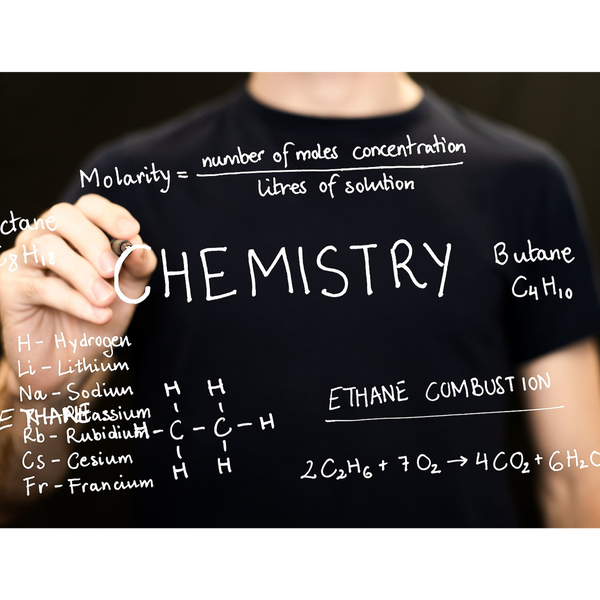 Molarity = number of moles concentration
litres of solution
ctane
C8H18
CHEMISTRY
Butane
C4H10
H - Hydrogen
Li - Lithium
Na - Sodium
ETHANE
Rb - Rubidium
Cs - Cesium
Fr - Francium
H H
H - C - C - H
H H
ETHANE COMBUSTION
2C2H6 + 7O2 → 4CO2 + 6H2O